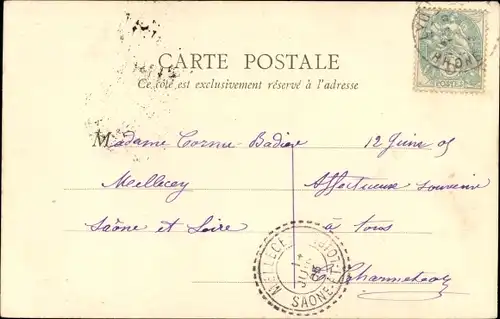 CARTE POSTALE
Ce côté est exclusivement réservé à l'adresse
Madame Cornu-Badier
Mellecey
Saône et Loire
12 Juin 05
Affectueux souvenir
à tous
MELLECEY
SAONE-ET-LOIRE
RHONE
POSTES